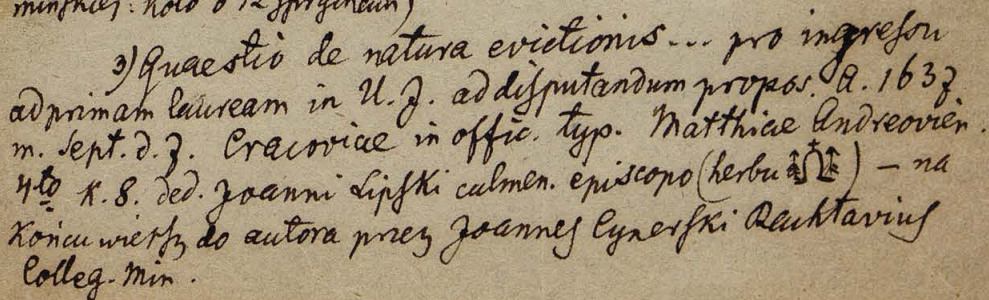 3) Quaestio de natura evictionis... pro ingressu
ad primam lauream in U. J. ad disputandum propos. A. 1637
m. Sept. d. 7. Cracoviae in offic. typ. Matthiae Andreovien.
4to k. 8. ded. Joanni Lipski culmen. episcopo (herbu ) – na
końcu wiersz do autora przez Joannes Cynerski Rachtavius
Colleg. Min.